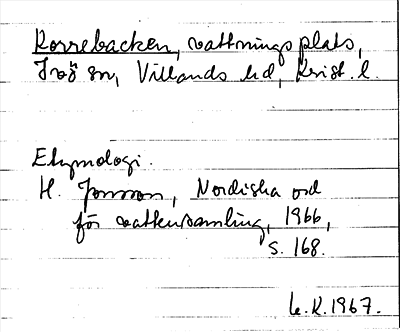 Korrebacken, vattningsplats,
Ivö sn, Villands hd, Krist. l.
Etymologi.
H. Jonsson, Nordiska ord
för vattensamling, 1966,
s. 168.
L.K. 1967.